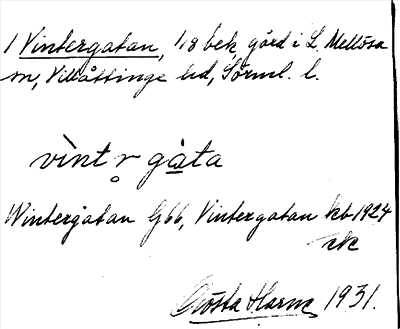 1 Vintergatan, 1/8 bek. gård i L. Mellösa
sn, Villåttinge hd, Sörml. l.
vìnt r̥ gàta
Wintergatan G66, Vintergatan kb 1924
rk
Gösta Harns 1931.